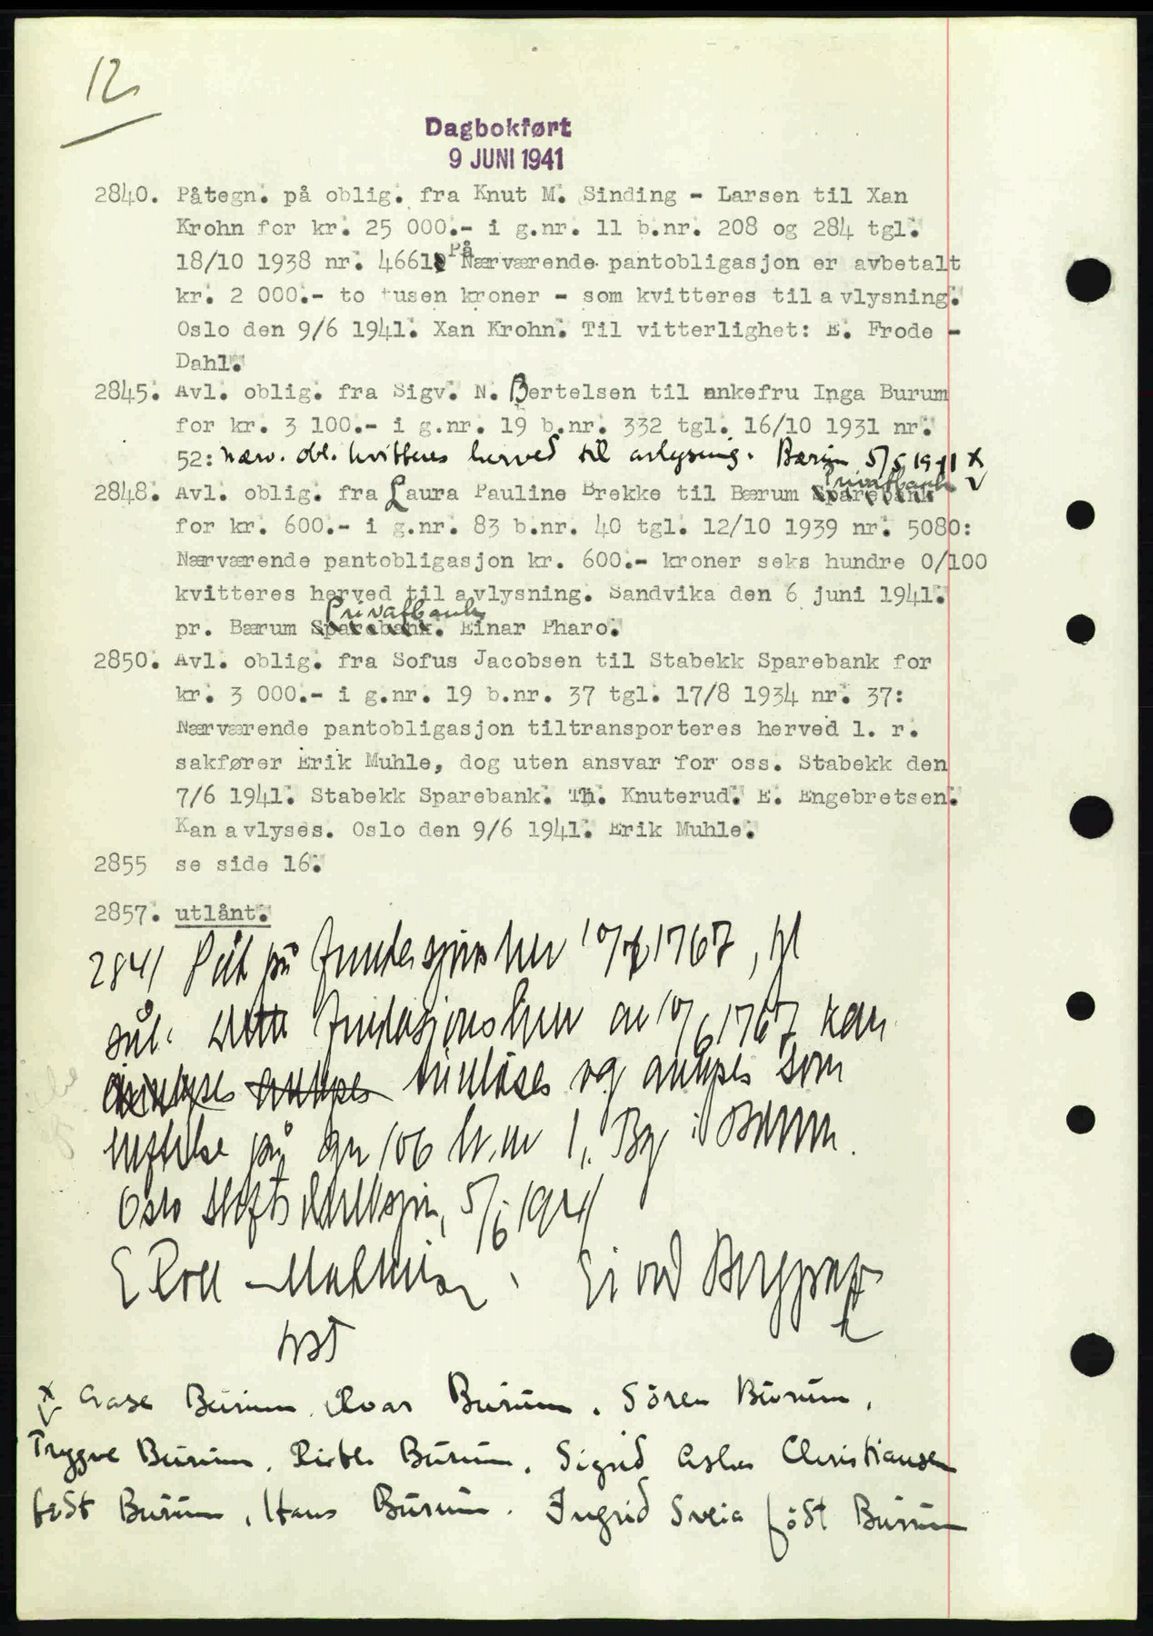 12
Dagbokført
9 JUNI 1941
2840. Påtegn. på oblig. fra Knut M. Sinding - Larsen til Xan
Krohn for kr. 25 000.- i g.nr. 11 b.nr. 208 og 284 tgl.
18/10 1938 nr. 4661. På Nærværende pantobligasjon er avbetalt
kr. 2 000.- to tusen kroner - som kvitteres til avlysning.
Oslo den 9/6 1941. Xan Krohn. Til vitterlighet: E. Frode -
Dahl.
2845. Avl. oblig. fra Sigv. N. Bertelsen til enkefru Inga Burum
for kr. 3 100.- i g.nr. 19 b.nr. 332 tgl. 16/10 1931 nr.
52: Nærv. obl. kvitteres herved til avlysning. Bærum 5/5 1941 x
2848. Avl. oblig. fra Laura Pauline Brekke til Bærum Sparebank Privatbank
for kr. 600.- i g.nr. 83 b.nr. 40 tgl. 12/10 1939 nr. 5080:
Nærværende pantobligasjon kr. 600.- kroner seks hundre 0/100
kvitteres herved til avlysning. Sandvika den 6 juni 1941.
pr. Bærum Sparebank. Privatbank Einar Pharo.
2850. Avl. oblig. fra Sofus Jacobsen til Stabekk Sparebank for
kr. 3 000.- i g.nr. 19 b.nr. 37 tgl. 17/8 1934 nr. 37:
Nærværende pantobligasjon tiltransporteres herved l. r.
sakfører Erik Muhle, dog uten ansvar for oss. Stabekk den
7/6 1941. Stabekk Sparebank. Th. Knuterud. E. Engebretsen.
Kan avlyses. Oslo den 9/6 1941. Erik Muhle.
2855 se side 16.
2857. utlånt.
2841 Påt på 10/6 1767,
Dette 10/6 1767 kan
og avlyses som
heftelse på gnr 106 br.nr 1, i Bærum.
Oslo Stiftsdireksjon, 5/6 1941
E Roll Eivind Berggrav
x Aase Burum, Roar Burum, Sören Burum,
Trygve Burum, Burum, Sigrid Christiansen
født Burum, Hans Burum. Ingrid Sveia født Burum